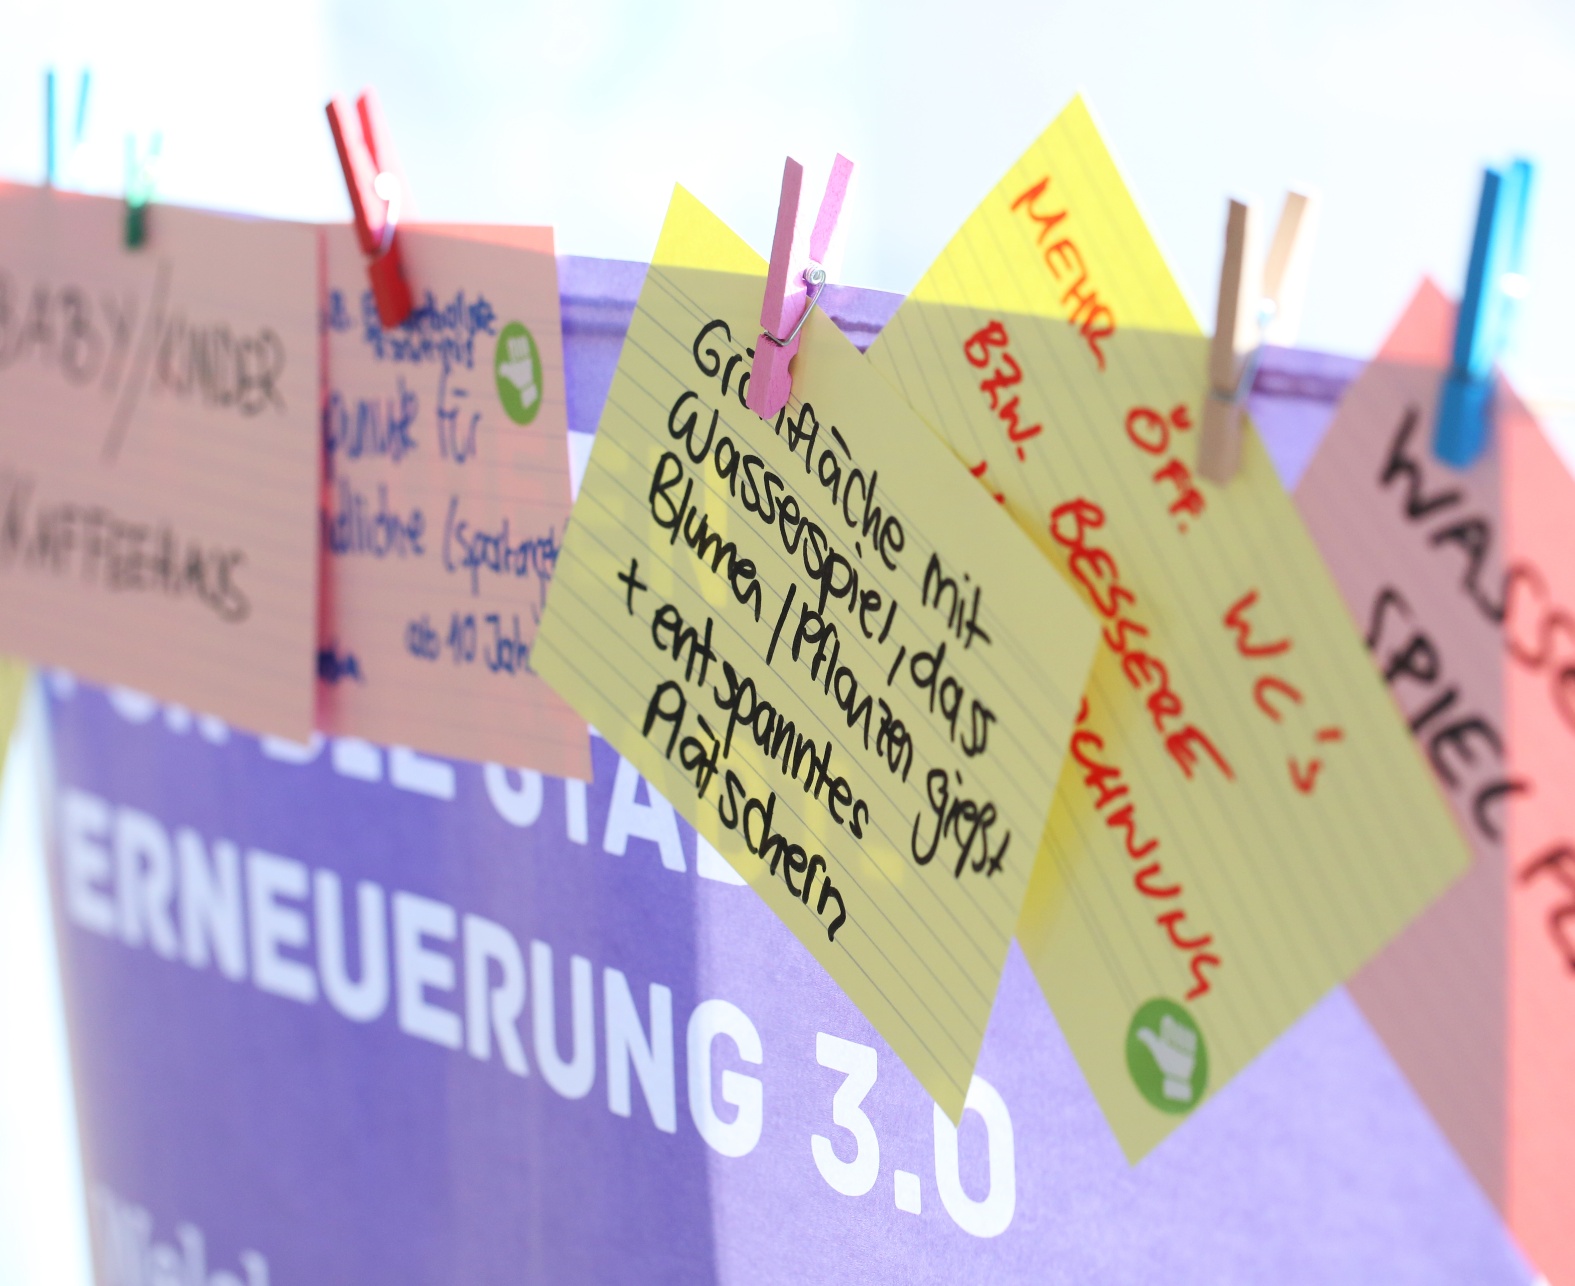 BABY/KINDER
KAFFEEHAUS
für
(sportange
ab 10 Jah
Grünfläche mit
Wasserspiel, das
Blumen / Pflanzen gießt
+ entspanntes
Plätschern
MEHR ÖFF. WC's
BZW. BESSERE
WASSE
SPIEL
FÜR DIE STAD
ERNEUERUNG 3.0